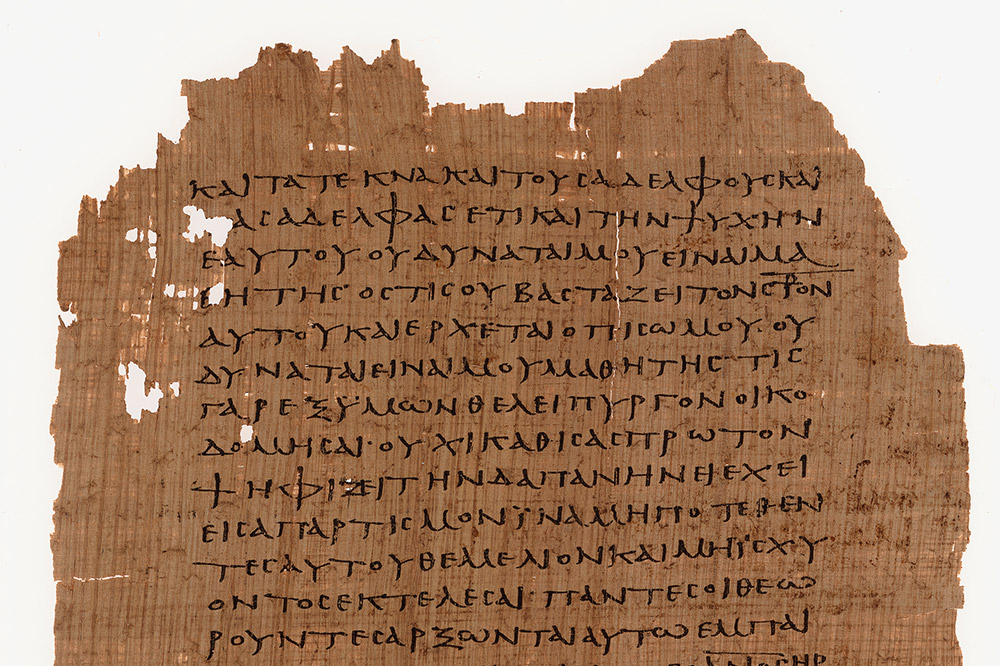 ΚΑΙ ΤΑ ΤΕΚΝΑ ΚΑΙ ΤΟΥϹ ΑΔΕΛΦΟΥϹ ΚΑΙ
ΑϹ ΑΔΕΛΦΑϹ ΕΤΙ ΚΑΙ ΤΗΝ ΨΥΧΗΝ
ΕΑΥΤΟΥ ΟΥ ΔΥΝΑΤΑΙ ΜΟΥ ΕΙΝΑΙ ΜΑ
ΘΗΤΗϹ ΟϹΤΙϹ ΟΥ ΒΑϹΤΑΖΕΙ ΤΟΝ Ϲ⳨ΟΝ
ΑΥΤΟΥ ΚΑΙ ΕΡΧΕΤΑΙ ΟΠΙϹΩ ΜΟΥ· ΟΥ
ΔΥΝΑΤΑΙ ΕΙΝΑΙ ΜΟΥ ΜΑΘΗΤΗϹ ΤΙϹ
ΓΑΡ ΕΞ ΥΜΩΝ ΘΕΛΕΙ ΠΥΡΓΟΝ ΟΙΚΟ
ΔΟΜΗϹΑΙ· ΟΥΧΙ ΚΑΘΙϹΑϹ ΠΡΩΤΟΝ
ΨΗΦΙΖΕΙ ΤΗΝ ΔΑΠΑΝΗΝ ΕΙ ΕΧΕΙ
ΕΙϹ ΑΠΑΡΤΙϹΜΟΝ ΪΝΑ ΜΗΠΟΤΕ ΘΕΝ
ΤΕϹ ΑΥΤΟΥ ΘΕΜΕΛΙΟΝ ΚΑΙ ΜΗ ΪϹΧΥ
ΟΝΤΟϹ ΕΚΤΕΛΕϹΑΙ· ΠΑΝΤΕϹ ΟΙ ΘΕΩ
ΡΟΥΝΤΕϹ ΑΡΞΩΝΤΑΙ ΑΥΤΩ ΕΜΠΑΙ